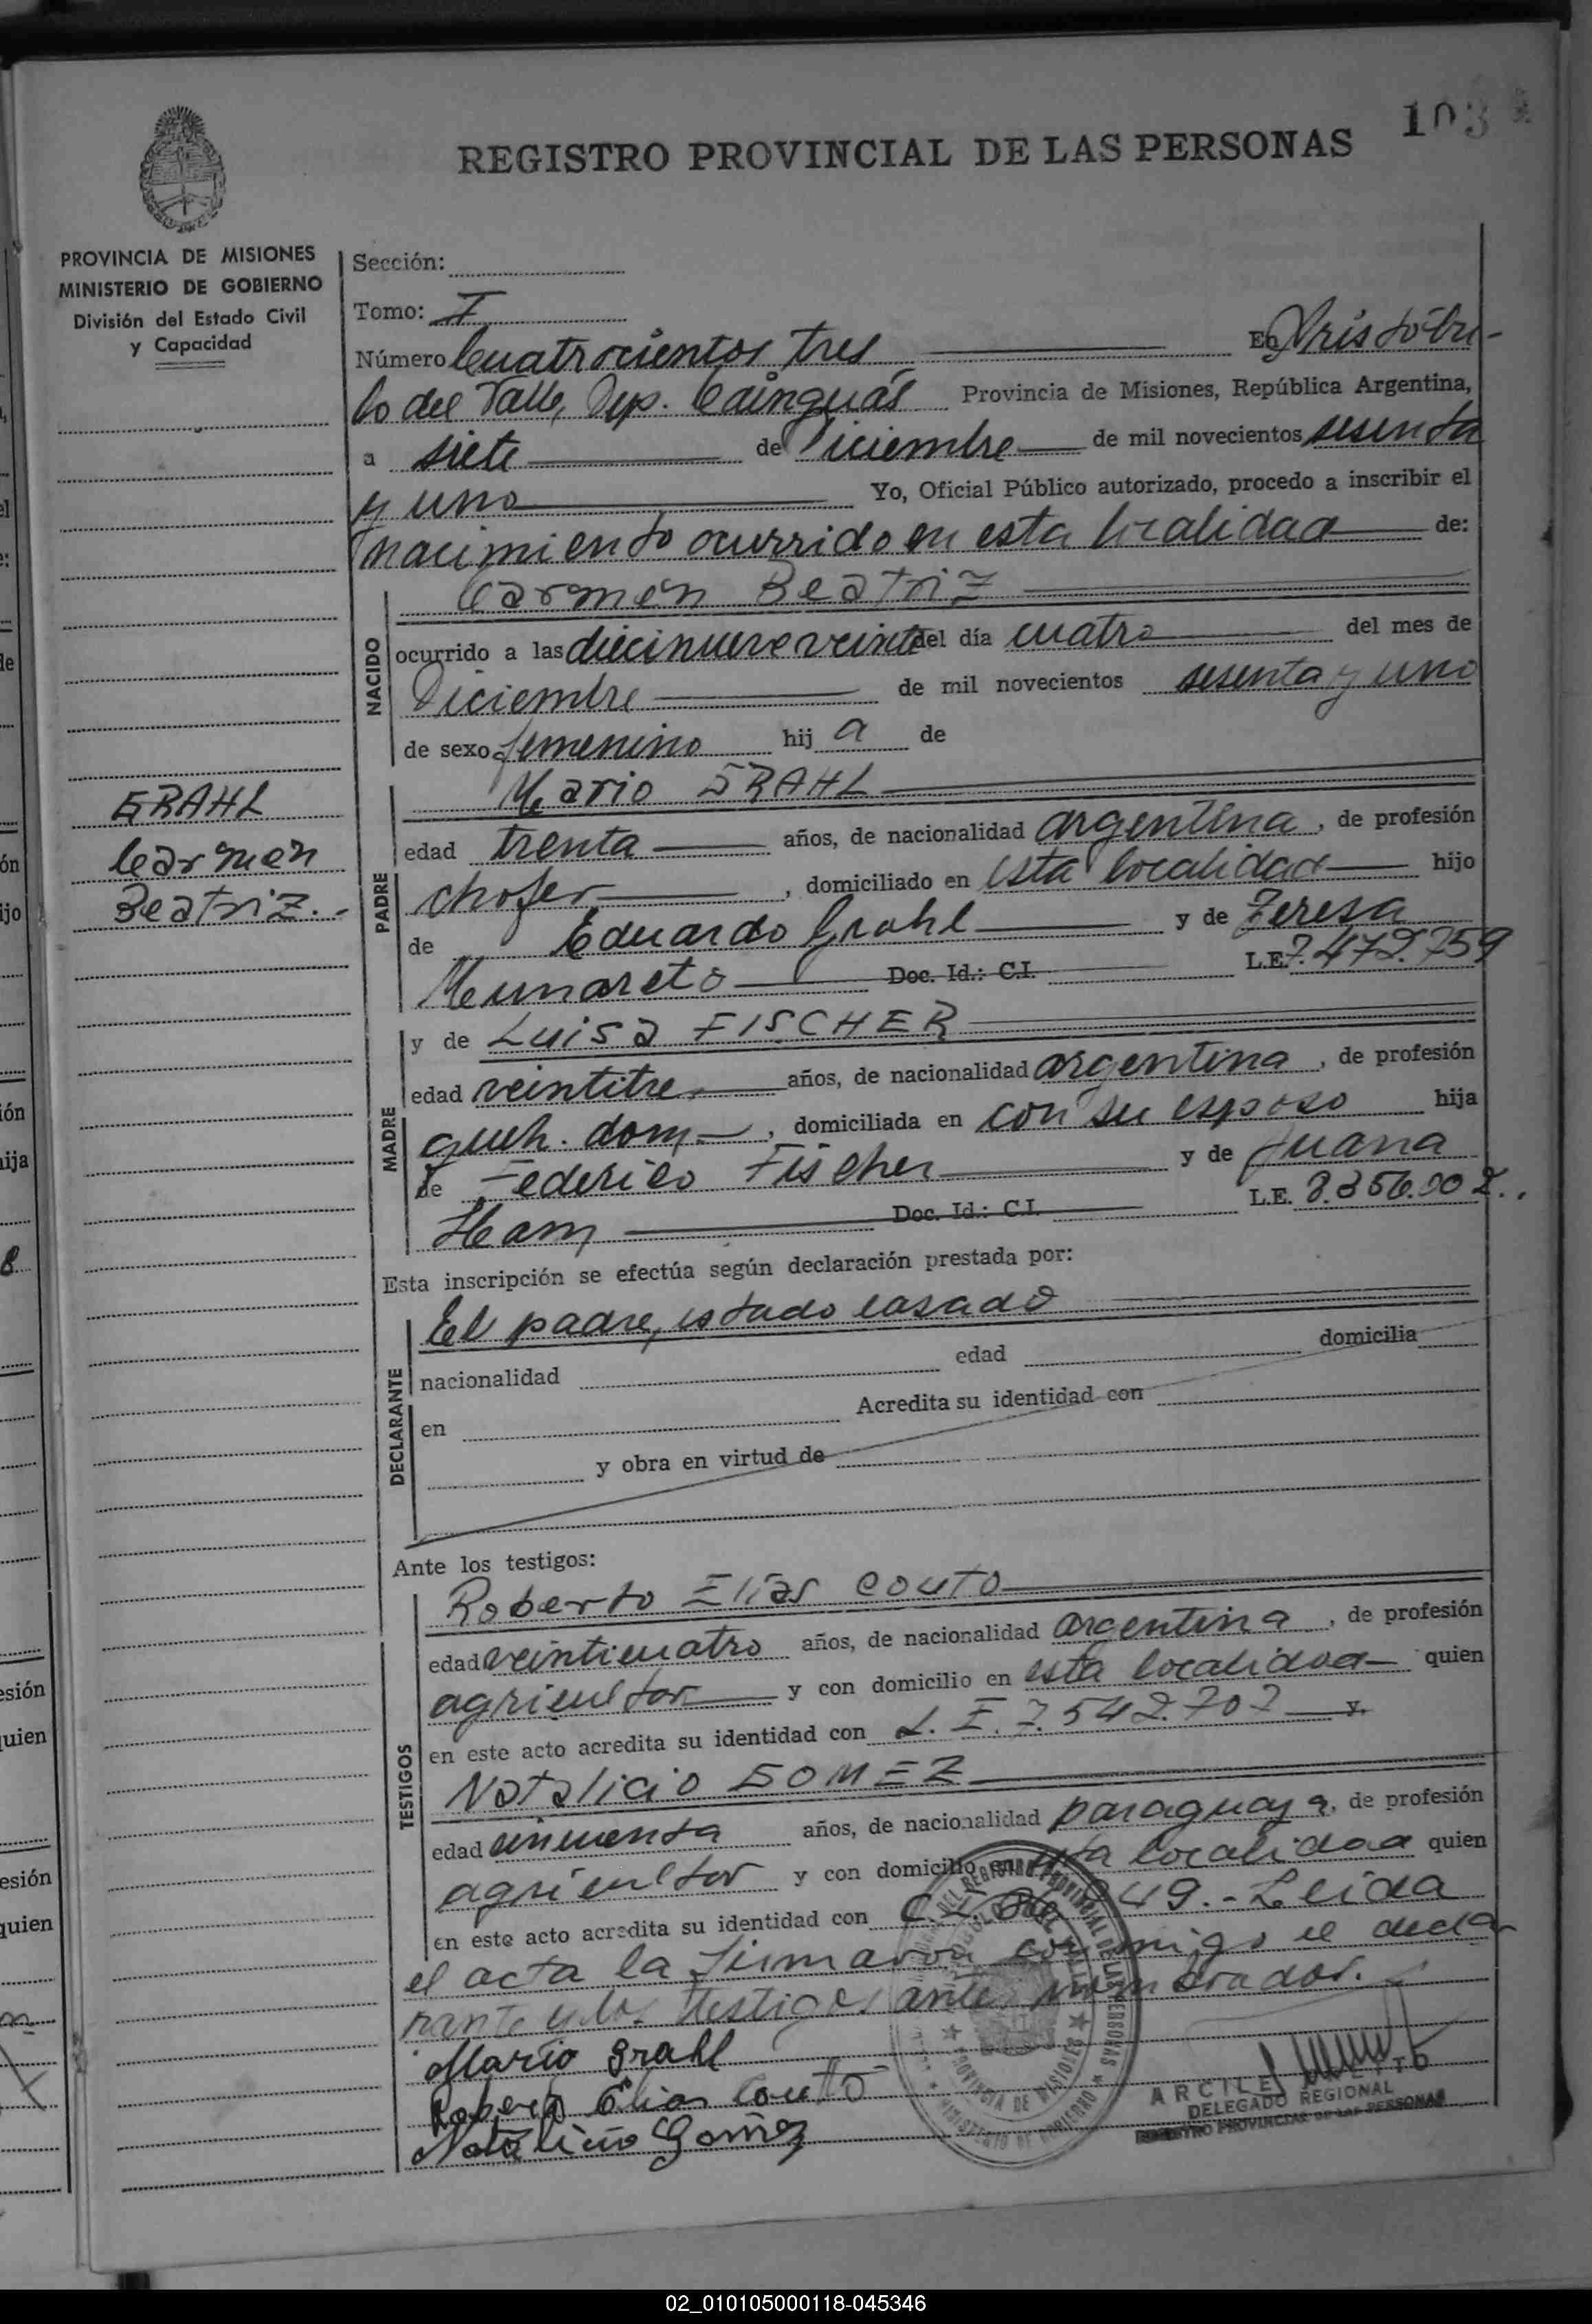 103
REGISTRO PROVINCIAL DE LAS PERSONAS
PROVINCIA DE MISIONES
MINISTERIO DE GOBIERNO
División del Estado Civil
y Capacidad
Sección:
Tomo: I
Número Cuatrocientos tres En Aristóbu-
lo del Valle, Dep. Cainguás Provincia de Misiones, República Argentina,
a siete de Diciembre de mil novecientos sesenta
y uno Yo, Oficial Público autorizado, procedo a inscribir el
nacimiento ocurrido en esta localidad de:
NACIDO
Carmen Beatriz
ocurrido a las diecinueve veinte del día cuatro del mes de
Diciembre de mil novecientos sesenta y uno
de sexo femenino hij a de
GRAHL
Carmen
Beatriz.-
PADRE
Mario GRAHL
edad trenta años, de nacionalidad argentina, de profesión
chofer, domiciliado en esta localidad hijo
de Eduardo Grahl y de Teresa
Munareto Doc. Id.: C.I. L.E. 7.472.759
MADRE
y de Luisa FISCHER
edad veintitres años, de nacionalidad argentina, de profesión
queh. dom., domiciliada en con su esposo hija
de Federico Fischer y de Juana
Ham Doc. Id.: C.I. L.E. 3.356.002..
Esta inscripción se efectúa según declaración prestada por:
DECLARANTE
El padre, estado casado
nacionalidad edad domicilia
en Acredita su identidad con
y obra en virtud de
Ante los testigos:
TESTIGOS
Roberto Elías COUTO
edad veinticuatro años, de nacionalidad argentina, de profesión
agricultor y con domicilio en esta localidad quien
en este acto acredita su identidad con L. E. 7.542.707 y.
Natalicio GOMEZ
edad cincuenta años, de nacionalidad paraguaya, de profesión
agricultor y con domicilio en esta localidad quien
en este acto acredita su identidad con C.I. 949.- Leida
el acta la firmaron conmigo el decla
rante y los testigos antes nombrados.
Mario Grahl
Roberto Elias Couto
Natalicio Gomez
DELEGADO REGIONAL
REGISTRO PROVINCIAL DE LAS PERSONAS
02_010105000118-045346